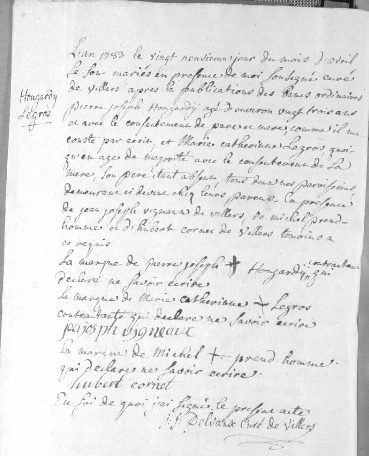 L'an 1783 le vingt neuvieme jour du mois d'avril
Se sont mariés en presence de moi sousigné curé
de villers apres la publications des bancs ordinaires
Hongardy
Legros
pierre joseph Hongardy agé d'environ vingt trois ans
et avec le consentement de pere et mere comme il me
conste par ecrit, et Marie catherienne Legros quoi
qu'en age de majorté avec le consentement de La
mere, son pere etant absent, tous deux nos paroissiens,
demeurant ici devant chez leurs parens. En presence
de jean joseph vigneaux de villers, de michel prend-
homme et d'hubert cornet de villers temoins a
ce requis
La marque de pierre joseph + Hongardy contractant qui
declaré ne savoir ecrire
La marque de Marie catherienne + Legros
contractante qui declare ne savoir ecrire
jea joseph vigneaux
La marque de Michel + prend homme
qui declare ne savoir ecrire.
hubert cornet
En foi de quoi j'ai signé le present acte
j. j. Delvaux curé de villers